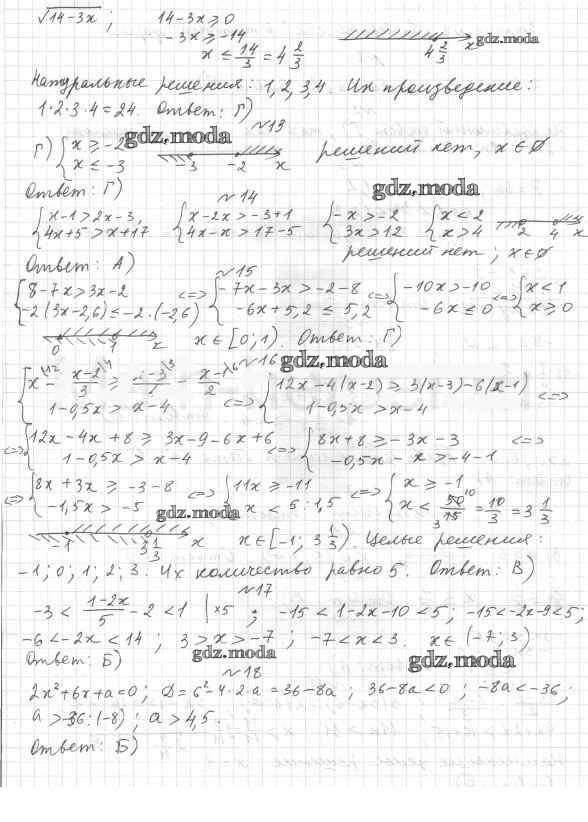 √14-3x ; 14-3x ≥ 0
-3x ≥ -14
x ≤ 14/3 = 4 2/3
4 2/3 x
gdz.moda
Натуральные решения: 1, 2, 3, 4. Их произведение:
1·2·3·4=24. Ответ: Г)
№13
gdz.moda
Г) { x ≥ -2 x ≤ -3 -3 -2 x решений нет, x ∈ ∅
Ответ: Г)
gdz.moda
№14
{ x-1 > 2x-3, 4x+5 > x+17 { x-2x > -3+1 4x-x > 17-5 { -x > -2 3x > 12 { x < 2 x > 4 2 4 x
решений нет; x ∈ ∅
Ответ: А)
№15
{ 8-7x > 3x-2 -2(3x-2,6) ≤ -2·(-2,6) <=> { -7x-3x > -2-8 -6x+5,2 ≤ 5,2 <=> { -10x > -10 -6x ≤ 0 <=> { x < 1 x ≥ 0
0 1 x x ∈ [0; 1). Ответ: Г)
№16 gdz.moda
{ x - x-2/3 ≥ x-3/4 - x-1/2 1-0,5x > x-4 <=> { 12x-4(x-2) ≥ 3(x-3)-6(x-1) 1-0,5x > x-4 <=>
<=> { 12x-4x+8 ≥ 3x-9-6x+6 1-0,5x > x-4 <=> { 8x+8 ≥ -3x-3 -0,5x - x > -4-1 <=>
<=> { 8x+3x ≥ -3-8 -1,5x > -5 <=> { 11x ≥ -11 x < 5:1,5 <=> { x ≥ -1 x < 50/15 = 10/3 = 3 1/3
gdz.moda
-1 3 1/3 x x ∈ [-1; 3 1/3). Целые решения:
-1; 0; 1; 2; 3. Их количество равно 5. Ответ: В)
№17
-3 < 1-2x/5 - 2 < 1 | ×5 ; -15 < 1-2x-10 < 5; -15 < -2x-9 < 5;
-6 < -2x < 14 ; 3 > x > -7 ; -7 < x < 3. x ∈ (-7; 3)
gdz.moda
gdz.moda
Ответ: Б)
№18
2x²+6x+a=0; D=6²-4·2·a=36-8a ; 36-8a<0 ; -8a<-36;
a > -36:(-8) ; a > 4,5.
Ответ: Б)